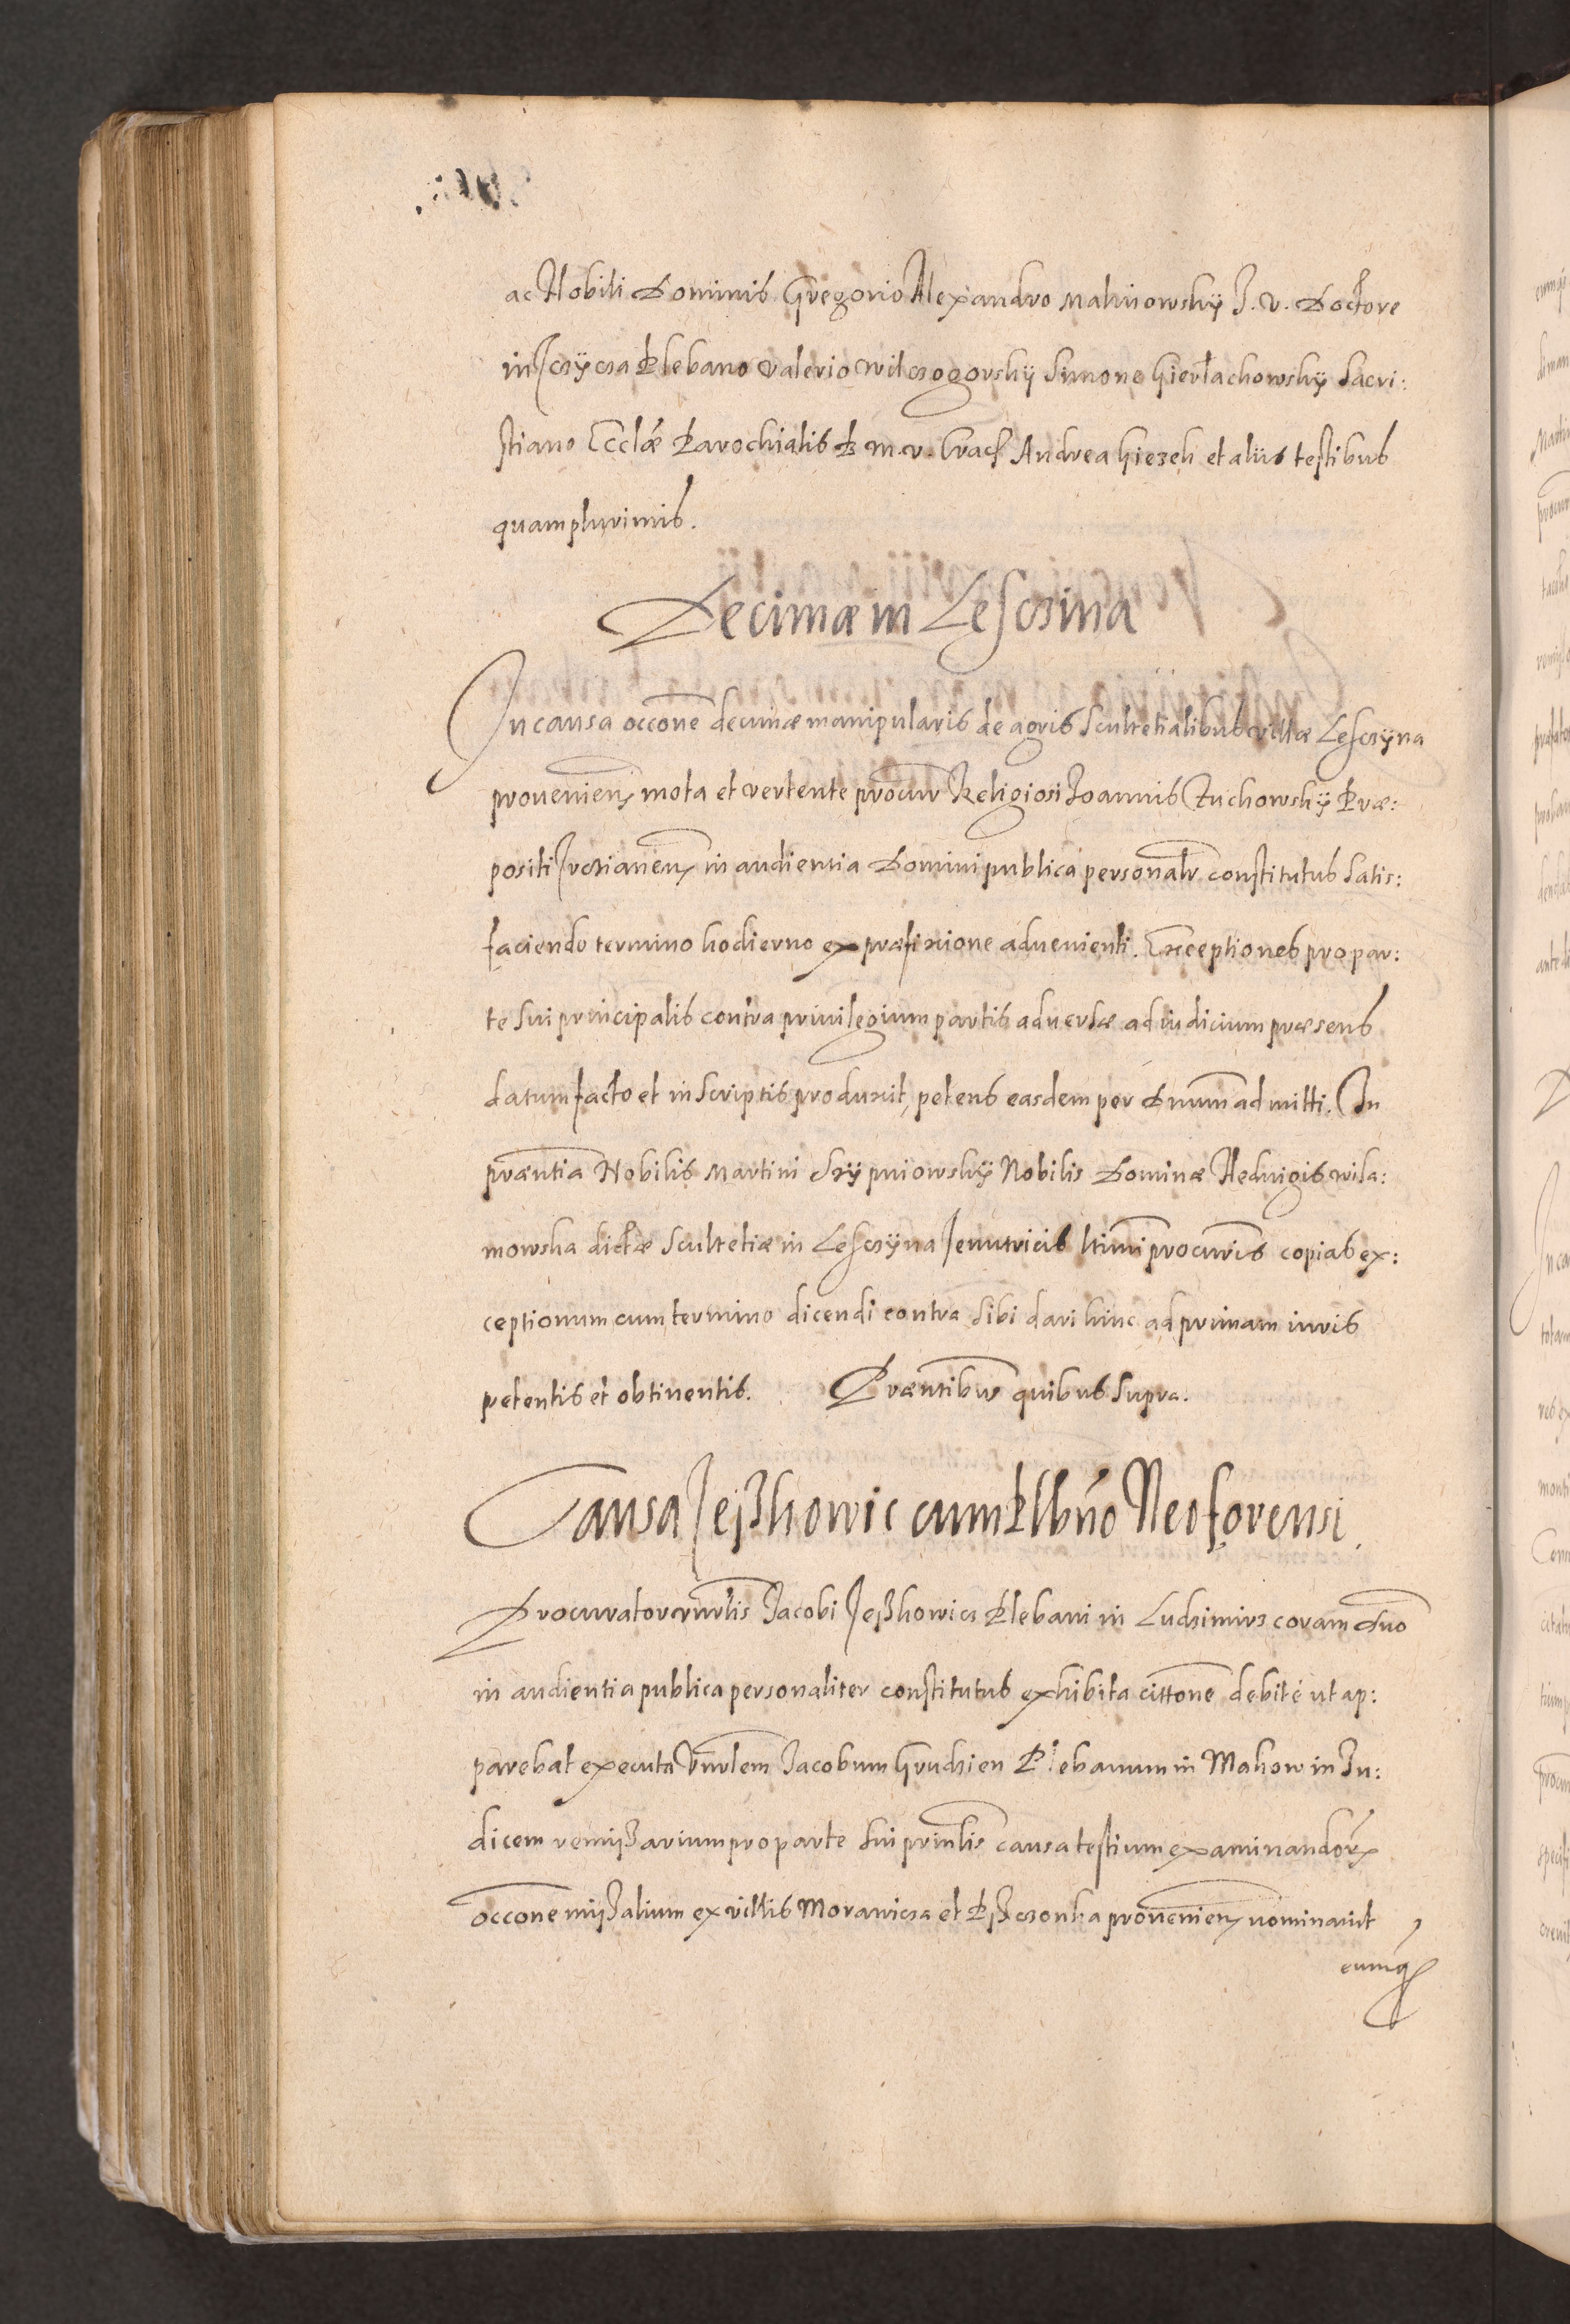 ac Nobili Dominis Gregorio Alexandro Maliиowskÿ J. V. Doctore
in Sczÿcza Plebano Valerio Wilczogorskÿ Simone Gierłachowskÿ Sacri:
stiano Eccłæ Parochialis B. M. V. Crac͡ Andrea Giezek et aliis testibus
quamplurimis.
Decimæ in Lesczina
In causa occ͠one decimæ manipularis de agris scultetialibus villæ Lesczÿna
prouenien͠ mota et vertente procur͠ Religiosi Joannis Żuchowskÿ Præ:
positi Irzonianen͠ in audientia Domini publica personalr͠ constitutus satis:
faciendo termino hodierno ex præfixione aduenienti. Exceptiones pro par:
te sui principalis contra priuilegium partis aduersæ ad iudicium præsens
datum facto et in scriptis produxit, petens easdem per Dnum͠ admitti. In
præntia͠ Nobilis Martini Skÿpniowskÿ Nobilis Dominæ Heduigis Wila:
mowska dictæ scultetiæ in Lesczÿna tenutricis ltimi͠ procur͠is copias ex:
ceptionum cum termino dicendi contra sibi dari hinc ad primam iuris
petentis et obtinentis. Præntibus͠ quibus supra.
Causa Jeßkowic cum Plbńo Neoforensi.
Procurator vnrl͠is Jacobi Jeßkowicz Plebani in Ludzimirz coram dno͠
in audientia publica personaliter constitutus exhibita citt͠one debite ut ap:
parebat executa Vnrlem͠ Jacobum Grudzien Plebanum in Makow in Ju:
dicem remißarium pro parte sui prin͠lis causa testium examinandor͠
occ͠one mißalium ex villis Morawicza et Pßczonka prouenien͠ nominauit
eumq͛